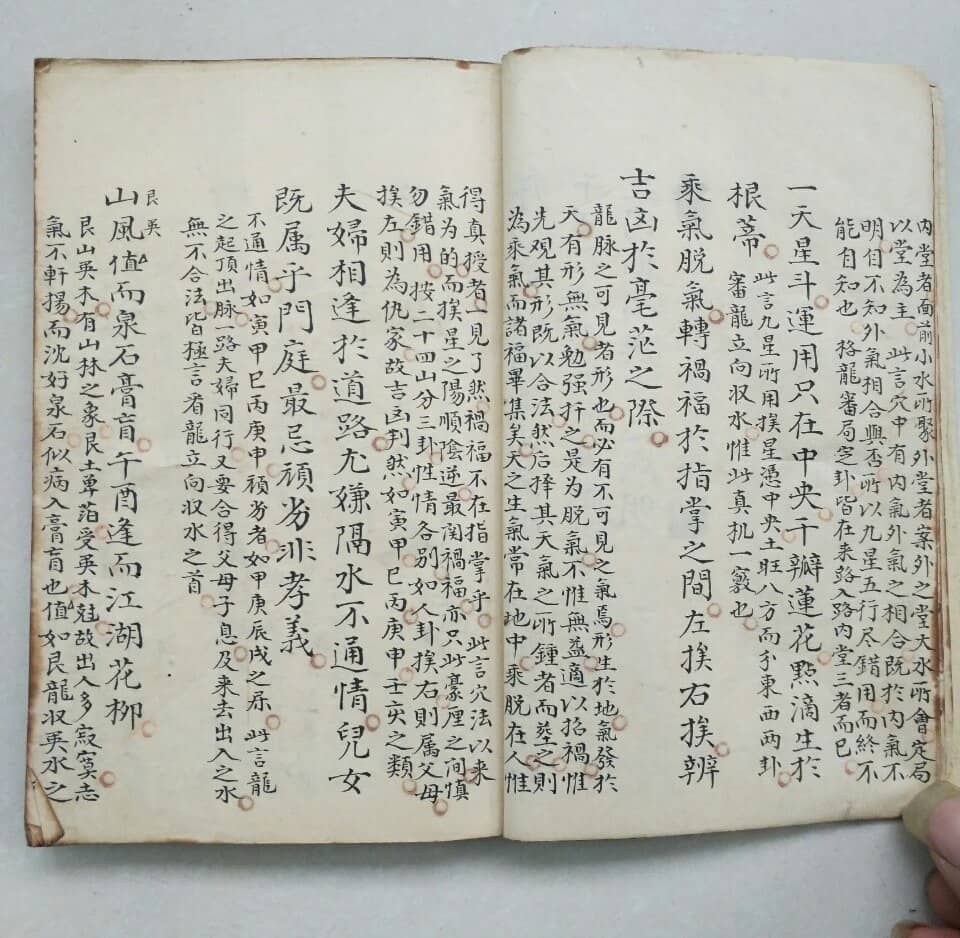 內堂者面前小水所聚外堂者案外之堂大水所會定局
以堂為主　此言穴中有內氣外氣之相合既於內氣不
明自不知外氣相合與否所以九星五行尽錯用而終不
能自知也　格龍審局定卦皆在来路入路內堂三者而已
一天星斗運用只在中央千瓣蓮花點滴生於
根蒂　此言九星所用挨星憑中央土旺八方而分東西兩卦
審龍立向収水惟此真机一竅也
乘氣脱氣轉禍福於指掌之間左挨右挨辨
吉凶於毫茫之際
龍脉之可見者形也而必有不可見之氣焉形生於地氣發於
天有形無氣勉强扦之是为脱氣不惟無益適以招禍惟
先观其形既以合法然后择其天氣之所鍾者而塟之則
為乘氣而諸福畢集矣天之生氣常在地中乘脱在人惟
得真授者一見了然禍福不在指掌乎　此言穴法以来
氣为的而挨星之陽順陰逆最関禍福亦只此豪厘之间慎
勿錯用　按二十四山分三卦性情各别如人卦挨右則属父母
挨左則為仇家故吉凶判然如寅甲巳丙庚申壬亥之類
夫婦相逢於道路尤嫌隔水不通情兒女
既属乎門庭最忌頑劣非孝義
不通情如寅甲巳丙庚申頑劣者如甲庚辰戌之系　此言龍
之起頂出脉一路夫婦同行又要合得父母子息及来去出入之水
無不合法皆極言看龍立向収水之首
艮巽
山風值而泉石膏肓午酉逢而江湖花柳
艮山巽木有山林之象艮土卑萡受巽木尅故出人多寂寞志
氣不軒揚而沈好泉石似病入膏肓也值如艮龍収巽水之